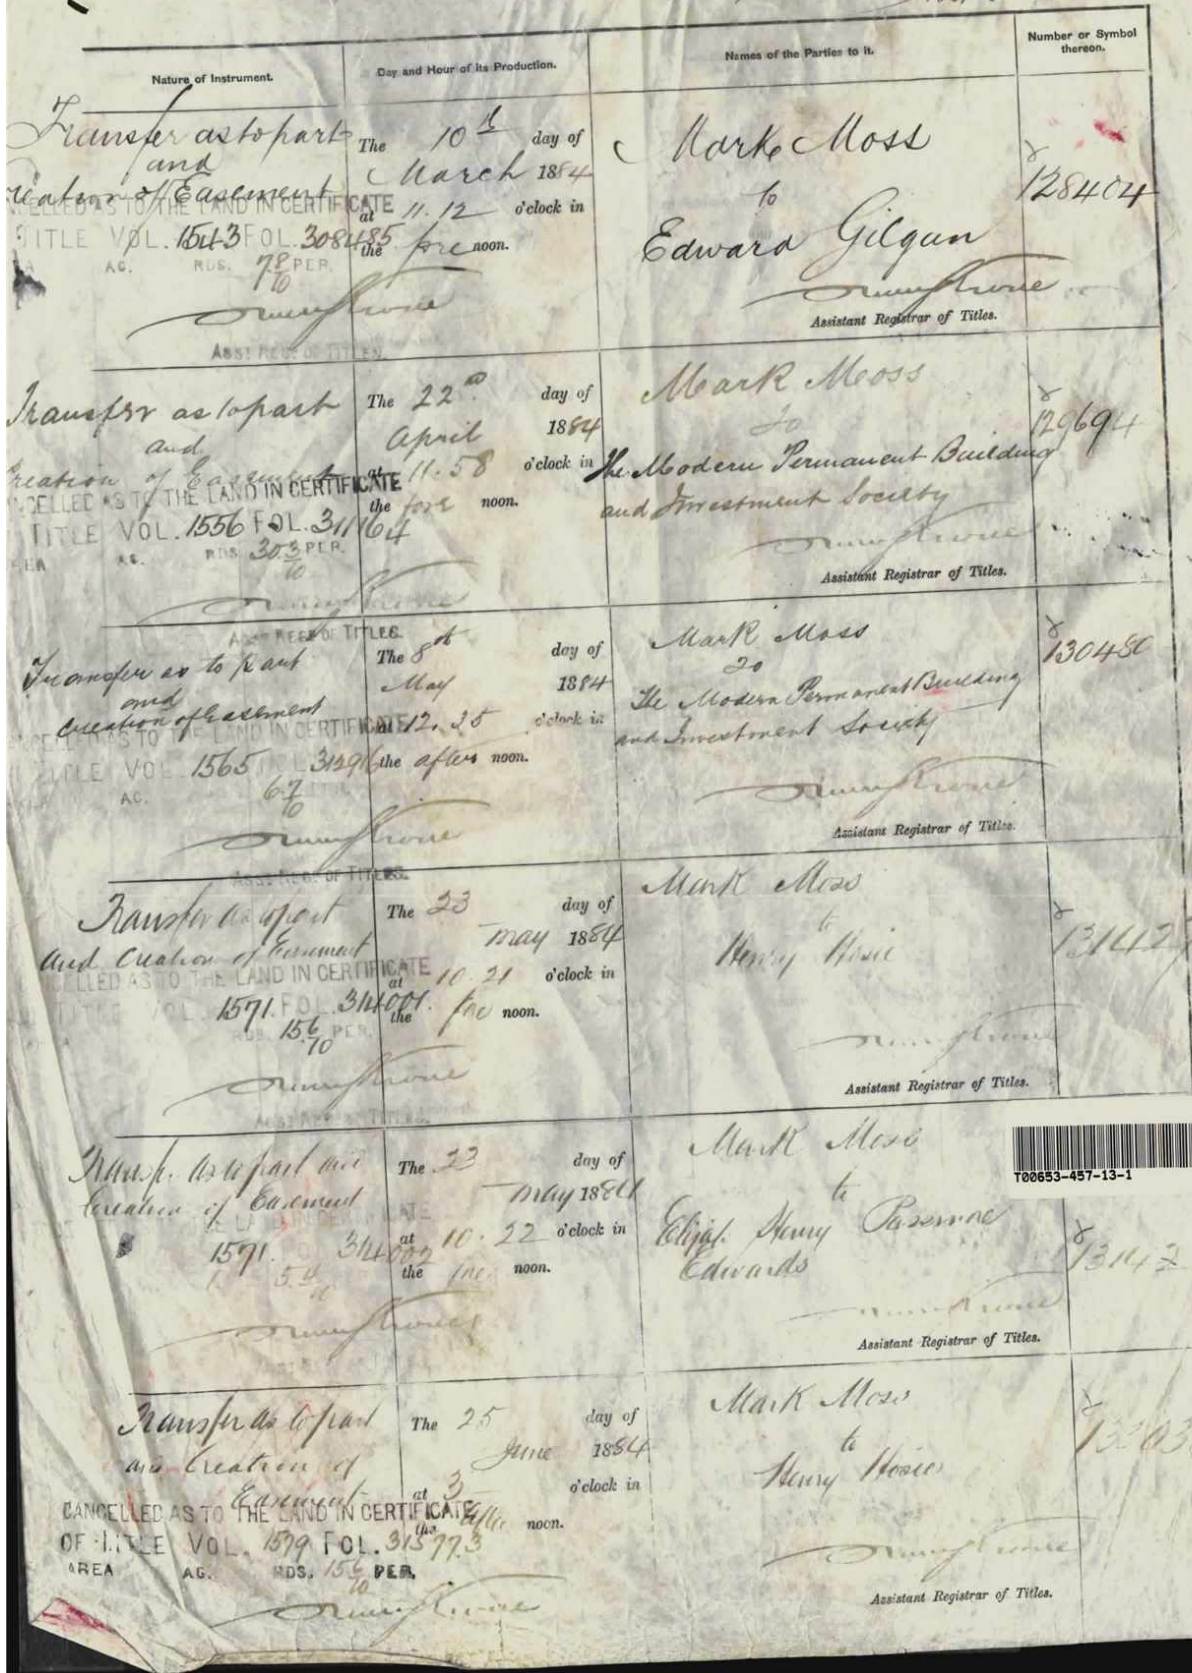 Nature of Instrument.
Day and Hour of its Production.
Names of the Parties to it.
Number or Symbol
thereon.
Transfer as to part
and
Creation of Easement
CANCELLED AS TO THE LAND IN CERTIFICATE
TITLE VOL. 1543 FOL. 308485
AC. RDS. 7 8/10 PER.
ASST. REG. OF TITLES.
The 10th day of
March 1884
at 11.12 o'clock in
the fore noon.
Mark Moss
to
Edward Gilgun
Assistant Registrar of Titles.
128404
Transfer as to part
and
Creation of Easement
CANCELLED AS TO THE LAND IN CERTIFICATE
TITLE VOL. 1556 FOL. 311164
AREA AC. RDS. 30 3/10 PER.
ASST. REG. OF TITLES.
The 22nd day of
April 1884
at 11.58 o'clock in
the fore noon.
Mark Moss
to
The Modern Permanent Building
and Investment Society
Assistant Registrar of Titles.
129694
Transfer as to part
and
Creation of Easement
CANCELLED AS TO THE LAND IN CERTIFICATE
TITLE VOL. 1565 FOL. 312916
AC. 6 7/10
ASST. REG. OF TITLES.
The 8th day of
May 1884
at 12.35 o'clock in
the after noon.
Mark Moss
to
The Modern Permanent Building
and Investment Society
Assistant Registrar of Titles.
130480
Transfer as to part
and Creation of Easement
CANCELLED AS TO THE LAND IN CERTIFICATE
TITLE VOL. 1571 FOL. 314001
RDS. 15 6/10 PER.
The 23 day of
May 1884
at 10.21 o'clock in
the fore noon.
Mark Moss
to
Henry Hosie
Assistant Registrar of Titles.
Transf. as to part and
Creation of Easement
THE LAND IN CERTIFICATE
1571 FOL 314002
The 23 day of
May 1884
at 10.22 o'clock in
the fore noon.
Mark Moss
to
Elijah Henry Passmore
Edwards
Assistant Registrar of Titles.
T00653-457-13-1
Transfer as to part
and Creation of
Easement
CANCELLED AS TO THE LAND IN CERTIFICATE
OF TITLE VOL. 1579 FOL. 315773
AREA AC. RDS. 15 6/10 PER.
The 25 day of
June 1884
at 3 o'clock in
the after noon.
Mark Moss
to
Henry Hosie
Assistant Registrar of Titles.